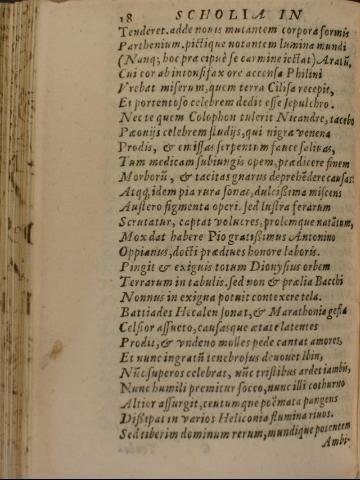 18 SCHOLIA IN
Tenderet. adde nouis mutantem corpora formis
Parthenium. pictique notantem lumina mundi
(Nanq; hoc præcipuè se carmine iectat) Aratũ,
Cui cor ab intonsis ax ore accensa Philini
Vrebat miserum, quem terra Cilissa recepit,
Et portentoso celebrem dedit esse sepulchro.
Nec te quem Colophon tulerit Nicandre, tacebo
Pæonijs celebrem studijs, qui nigra venena
Prodis, & emissas serpentum fauce saliuas,
Tum medicam subiungis opem, prædicere finem
Morborũ, & tacitas gnarus deprehẽdere causas.
Atqq, idem pia rura sonas, dulcißima miscens
Austero figmenta operi. sed lustra ferarum
Scrutatur, captat volucres, prolemque natãtum,
Mox dat habere Pio gratißimus Antonino
Oppianus, docti prædiues honore laboris.
Pingit & exiguis totum Dionysius orbem
Terrarum in tabulis. sed non & prælia Bacchi
Nonnus in exigua potuit contexere tela.
Battiades Hecalen sonat, & Marathonia gesta
Celsior assueto, causasque ætate latentes
Prodit, & vndeno molles pede cantat amores,
Et nunc ingratũ tenebrosus deuouet ibin,
Nũc superos celebrat, nũc tristibus ardet iambis,
Nunc humili premitur socco, nunc illi cothurno
Altior assurgit, centumque poëmata pangens
Dißipat in varios Heliconia flumina riuos.
Sed tiberim dominum rerum, mundique potentem
Ambi-